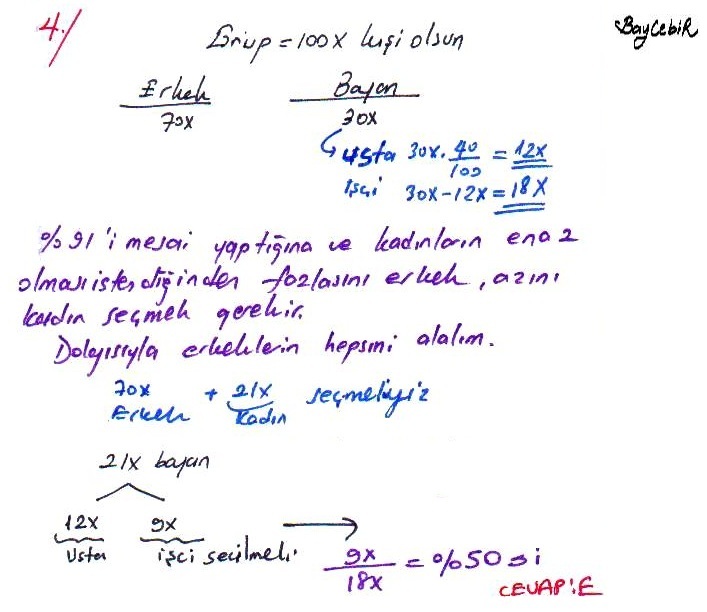 4./
BayCebiR
Grup = 100x kişi olsun
Erkek Bayan
70x 30x
usta 30x. 40/100 = 12x
işçi 30x-12x = 18x
%91'i mesai yaptığına ve kadınların en az
olması istendiğinden fazlasını erkek, azını
kadın seçmek gerekir.
Dolayısıyla erkeklerin hepsini alalım.
70x + 21x seçmeliyiz
Erkek Kadın
21x bayan
12x 9x
Usta işçi seçilmeli.
9x/18x = %50 si
CEVAP:E